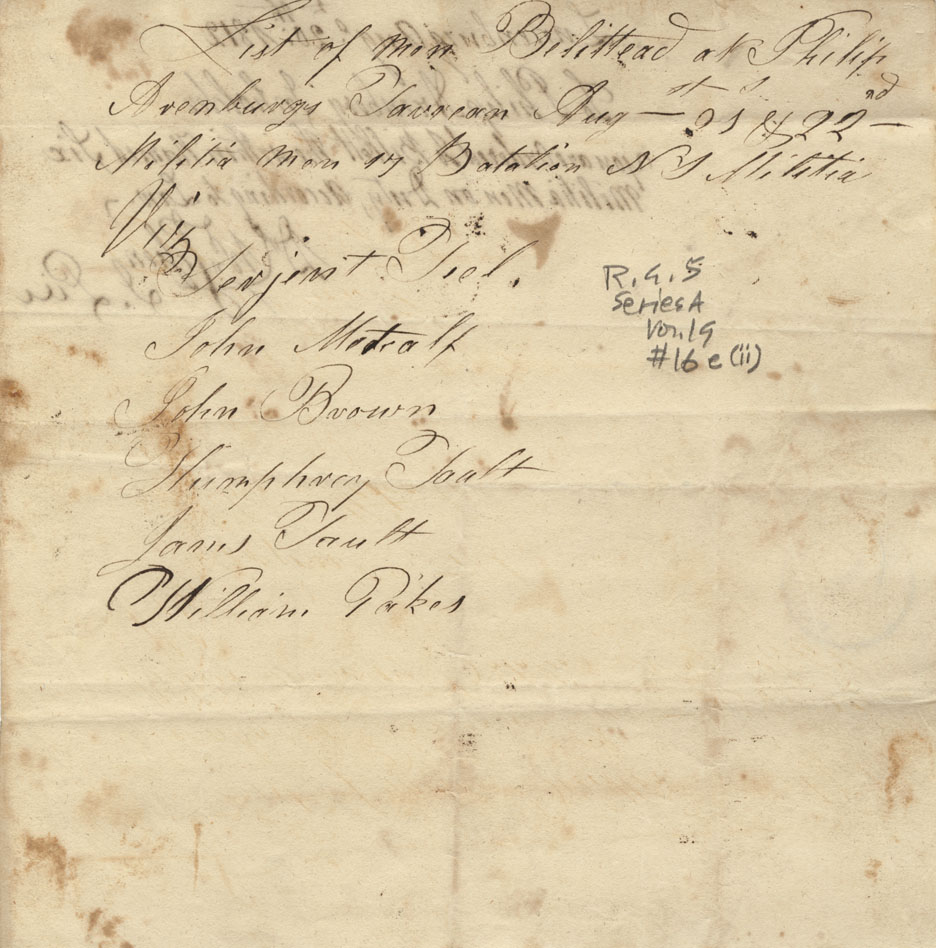 List of men Belittead at Philip
Arenburgs Tavrean Aug— 21st & 22nd —
Militia men 17 Batalion N S Militia
Viz
Serjent Teel.
John Metcalf
John Brown
Humphrey Tault
Jams Tault
William Pikes
R.G.5
Series A
Vol 19
#16 e (ii)